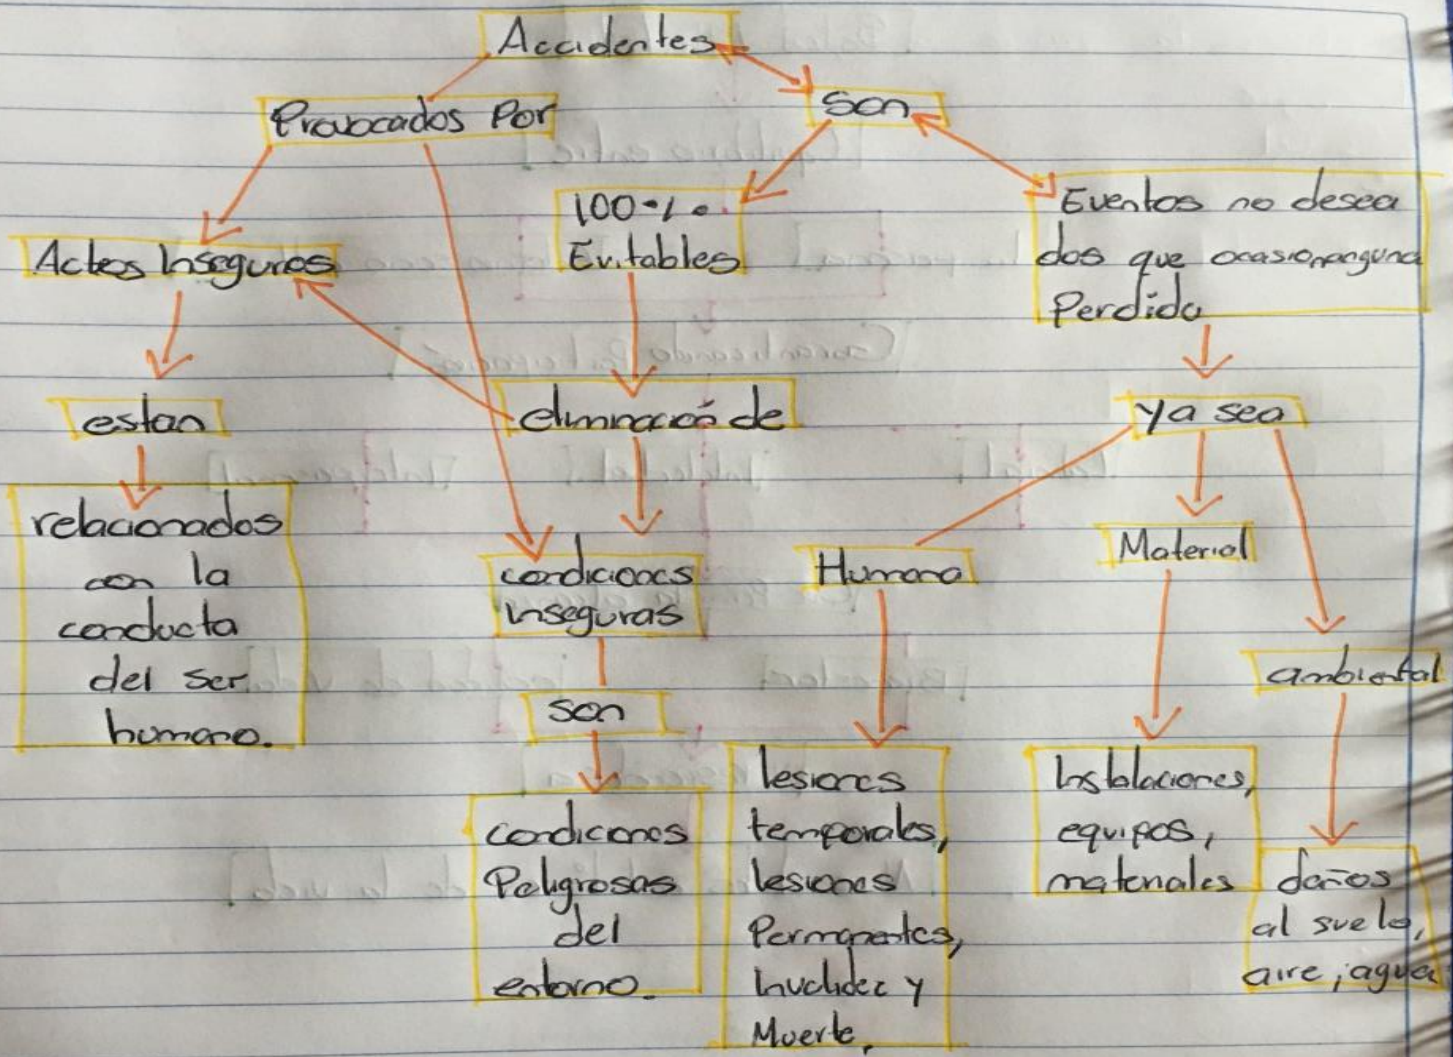 Accidentes
Provocados Por
Son
100%
Evitables
Eventos no desea
dos que ocasionanguna
Perdida
Actos Inseguros
estan
eliminación de
ya sea
relacionados
con la
conducta
del ser
humano.
condiciones
inseguras
Humano
Material
ambiental
son
condiciones
Peligrosas
del
entorno.
lesiones
temporales,
lesiones
Permanentes,
Invalidez y
Muerte.
Instalaciones,
equipos,
materiales
daños
al suelo,
aire, agua